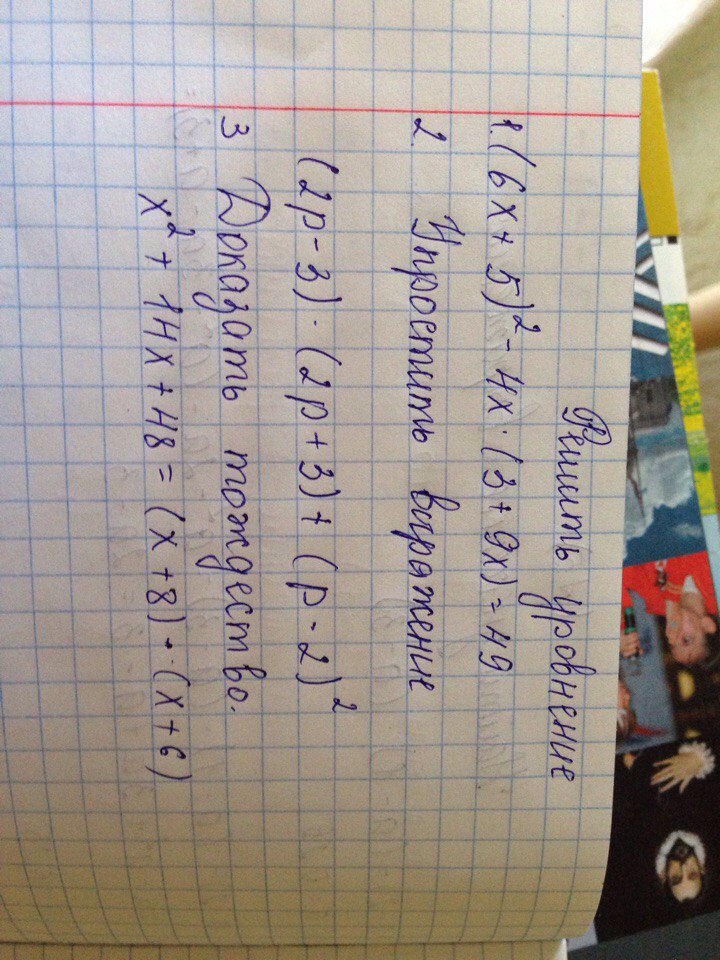 Решить уровнение
1. (6x + 5)² - 4x · (3 + 9x) = 49
2. Упростить выражение
(2p - 3) · (2p + 3) + (p - 2)²
3 Доказать тождество.
x² + 14x + 48 = (x + 8) · (x + 6)